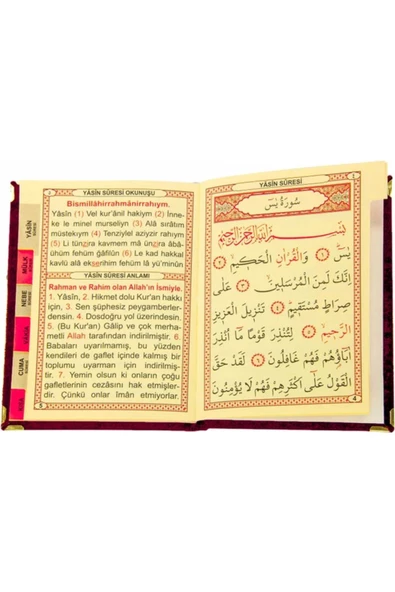 YÂSÎN SÛRESİ OKUNUŞU
Bismillâhirrahmânirrahıym.
Yâsîn (1) Vel kur'ânil hakiym (2) İnne-
ke le minel murseliyn (3) Alâ sırâtım
müstekıym (4) Tenziylel aziyzir rahıym
(5) Li tünzira kavmem mâ ünzira âbâ-
ühüm fehüm gâfilûn (6) Le kad hakkal
kavlü alâ ekserihim fehüm lâ yü'minûn
YÂSÎN SÛRESİ ANLAMI
Rahman ve Rahim olan Allah'ın İsmiyle.
1. Yâsîn, 2. Hikmet dolu Kur'an hakkı
için, 3. Sen şüphesiz peygamberler-
densin. 4. Dosdoğru yol üzerindesin.
5. (Bu Kur'an) Gâlip ve çok merha-
metli Allah tarafından indirilmiştir. 6.
Babaları uyarılmamış, bu yüzden
kendileri de gaflet içinde kalmış bir
toplumu uyarman için indirilmiş-
tir. 7. Yemin olsun ki onların çoğu
gafletlerinin cezâsını hak etmişler-
dir. Çünkü onlar îmân etmiyorlar.
5
YÂSÎN
MÜLK
NEBE
CUMA
YÂSÎN SÛRESİ
سُورَةُ يٰسٓ
بِسْمِ اللّٰهِ الرَّحْمٰنِ الرَّحِيمِ
يٰسٓ ﴿١﴾ وَالْقُرْاٰنِ الْحَكِيمِ ﴿٢﴾
اِنَّكَ لَمِنَ الْمُرْسَلِينَ ﴿٣﴾ عَلٰى
صِرَاطٍ مُسْتَقِيمٍ ﴿٤﴾ تَنْزِيلَ الْعَزِيزِ
الرَّحِيمِ ﴿٥﴾ لِتُنْذِرَ قَوْمًا مَٓا اُنْذِرَ
اٰبَٓاؤُهُمْ فَهُمْ غَافِلُونَ ﴿٦﴾ لَقَدْ حَقَّ
الْقَوْلُ عَلٰٓى اَكْثَرِهِمْ فَهُمْ لَا يُؤْمِنُونَ
4